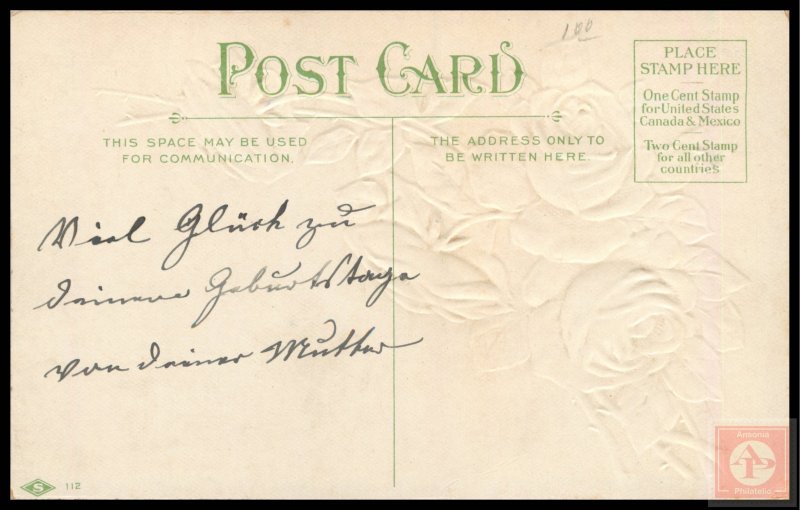 100
POST CARD
THIS SPACE MAY BE USED
FOR COMMUNICATION.
THE ADDRESS ONLY TO
BE WRITTEN HERE.
PLACE
STAMP HERE
One Cent Stamp
for United States
Canada & Mexico
Two Cent Stamp
for all other
countries
Viel Glück zu
deinem Geburtstage
von deiner Mutter
S 112
Ansonia
AP
Philatelic